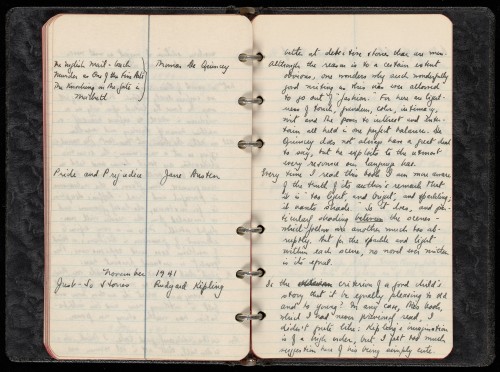 The English Mail-Coach
Murder as One of the Fine Arts
The Knocking on the Gate in
Macbeth
Thomas De Quincey
Pride and Prejudice
Jane Austen
November 1941
Just-So Stories
Rudyard Kipling
better at detective stories than are men.
Although the reason is to a certain extent
obvious, one wonders why such wonderfully
good writing as this was ever allowed
to go out of "fashion." For here are light-
ness of touch, wisdom, color, intimacy,
wit and the power to interest and enter-
tain all held in one perfect balance. De
Quincey does not always have a great deal
to say, but he exploits to the utmost
every resource our language has.
Every time I read this book I am more aware
of the truth of its author's remark that
it is "too light, and bright, and sparkling;
it wants shade." So it does, and par-
ticularly shading between the scenes -
which follow one another much too ab-
ruptly. But for the sparkle and light
within each scene, no novel ever written
is its equal.
Is the criterion of a good child's
story that it be equally pleasing to old
and to young? In any case, this book,
which I had never previously read, I
didn't quite like: Kipling's imagination
is of a high order, but I felt too much
suggestion here of his being simply cute.